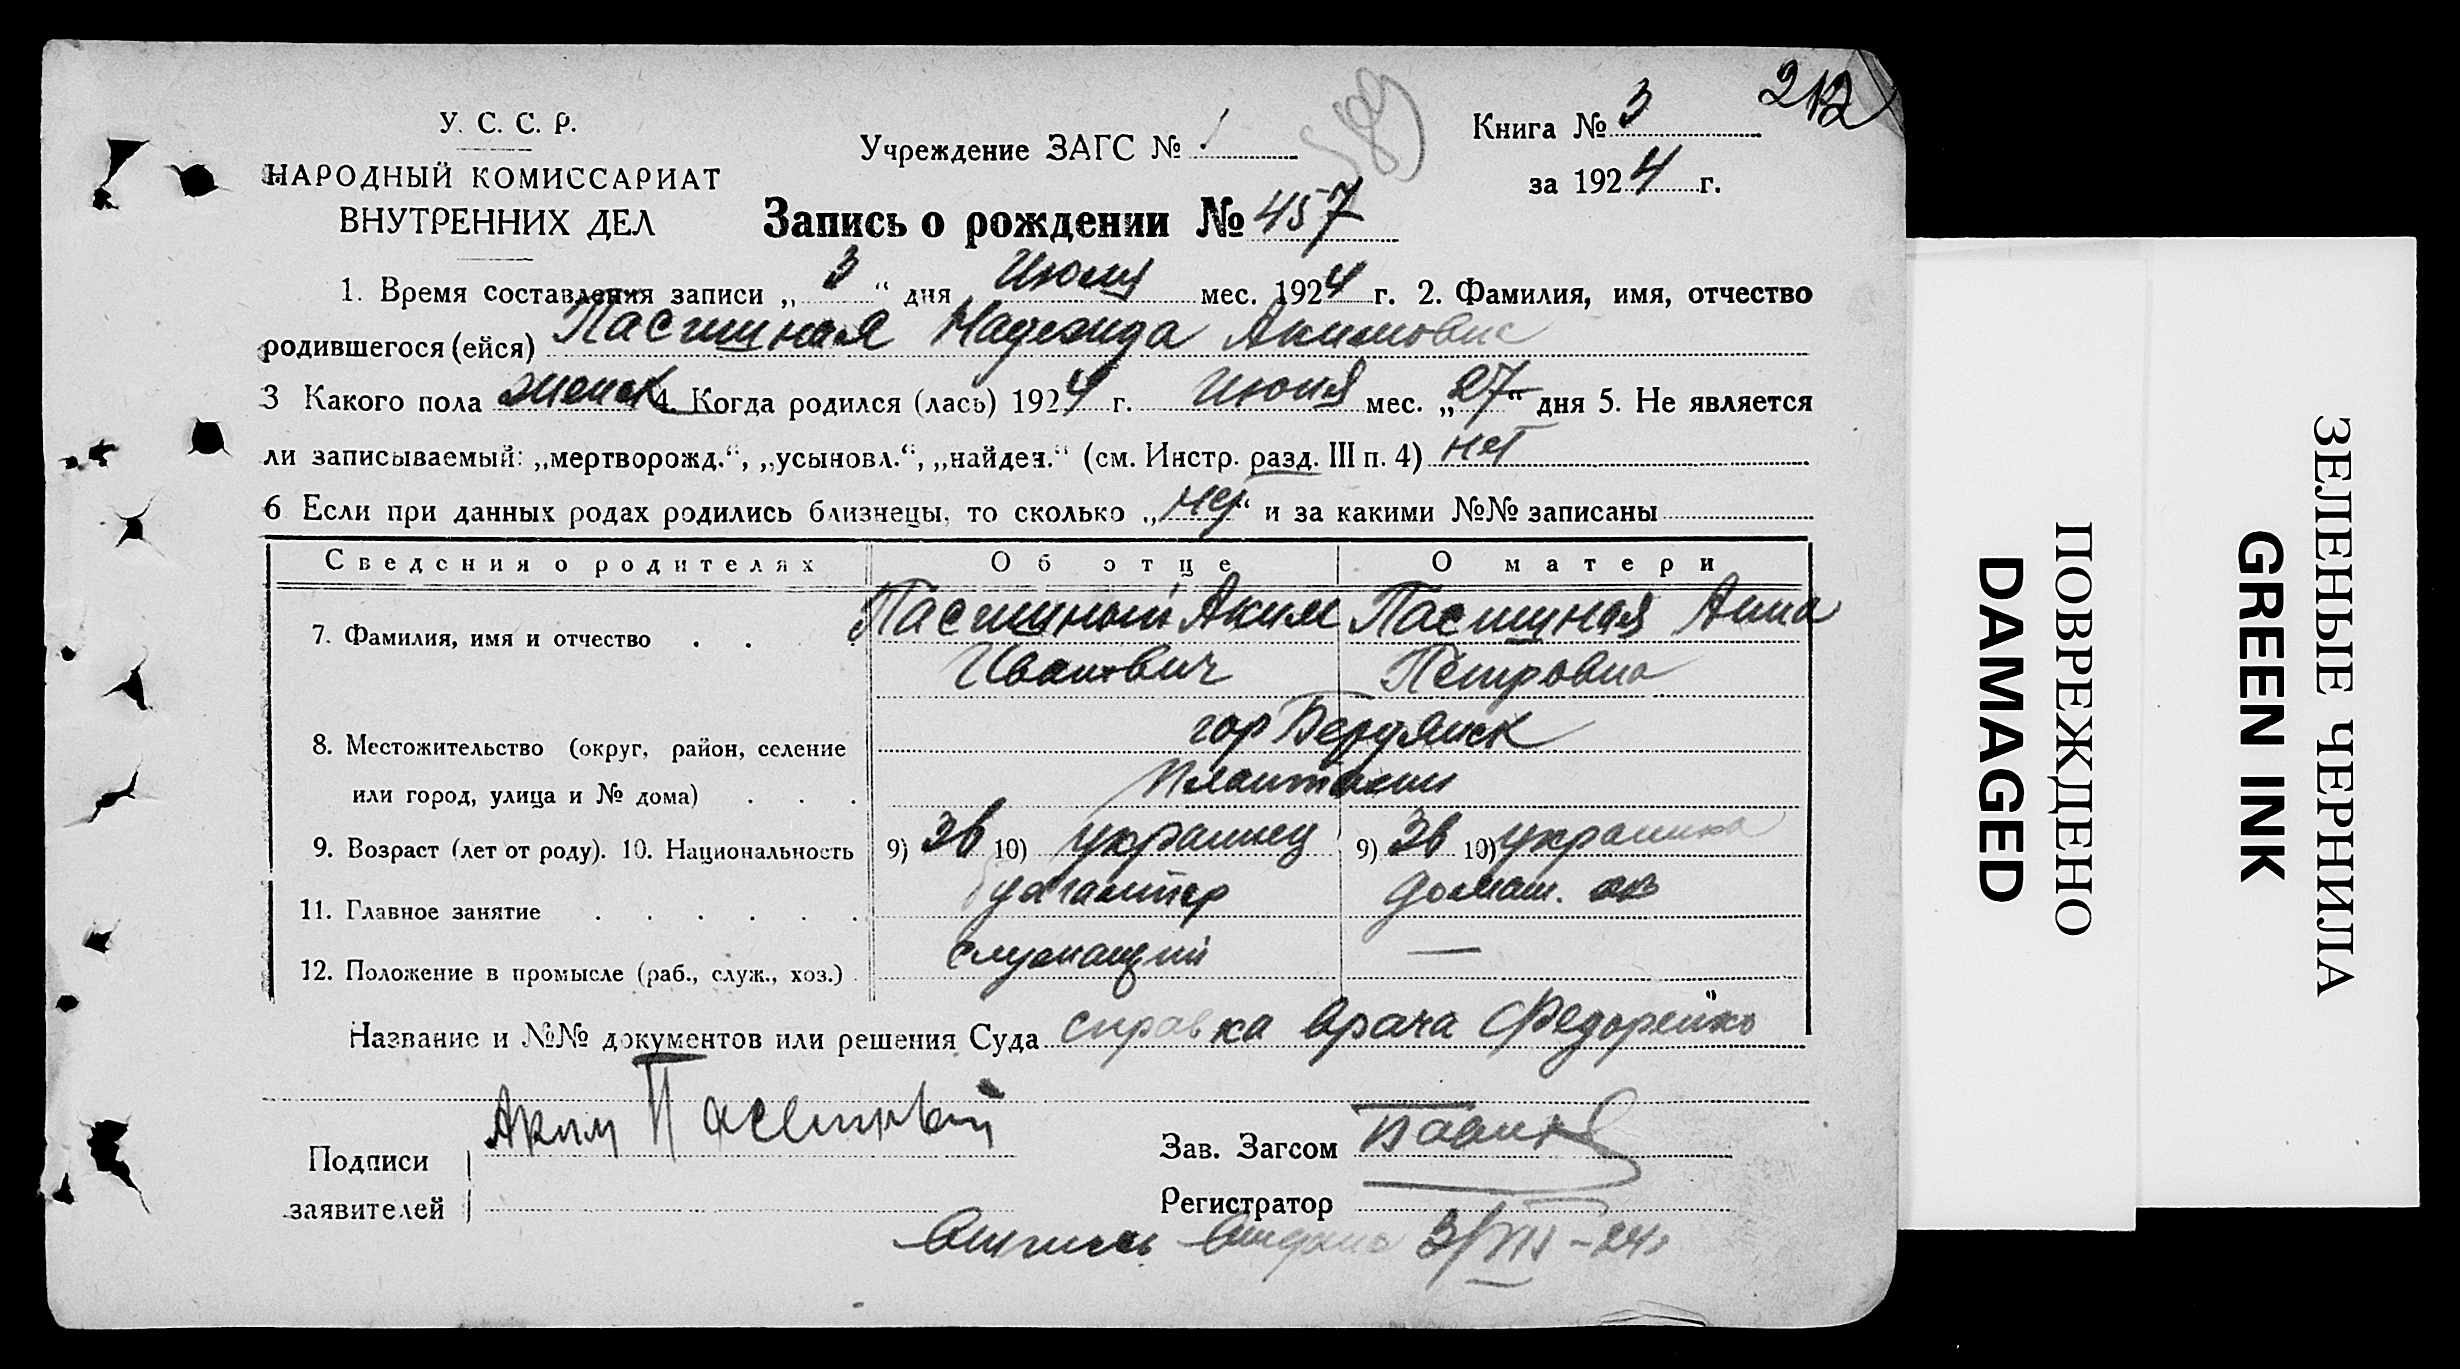 212
У. С. С. Р.
НАРОДНЫЙ КОМИССАРИАТ
ВНУТРЕННИХ ДЕЛ
Учреждение ЗАГС № 1
589
Книга № 3
за 1924 г.
Запись о рождении № 457
1. Время составления записи „3“ дня Июля мес. 1924 г. 2. Фамилия, имя, отчество
родившегося (ейся) Пастшная Надежида Акимовна
3 Какого пола женск 4. Когда родился (лась) 1924 г. Июня мес. „27“ дня 5. Не является
ли записываемый: „мертворожд.“, „усыновл.“, „найден.“ (см. Инстр. разд. III п. 4) нет
6 Если при данных родах родились близнецы, то сколько „нет“ и за какими №№ записаны
Сведения о родителях Об отце О матери
7. Фамилия, имя и отчество . . . Аким Анна
Иванович Петровна
8. Местожительство (округ, район, селение гор Бердянск
или город, улица и № дома) . . .
9. Возраст (лет от роду). 10. Национальность 9) 36 10) украинец 9) 36 10) украинка
11. Главное занятие . . . . . . бухгалтер домаш. хоз
12. Положение в промысле (раб., служ., хоз.) . служащий —
Название и №№ документов или решения Суда справка врача Федорейко
Подписи Аким
заявителей
Зав. Загсом
Регистратор
Выпись выдана 3/VII-24г
ПОВРЕЖДЕНО
DAMAGED
ЗЕЛЕНЫЕ ЧЕРНИЛА
GREEN INK